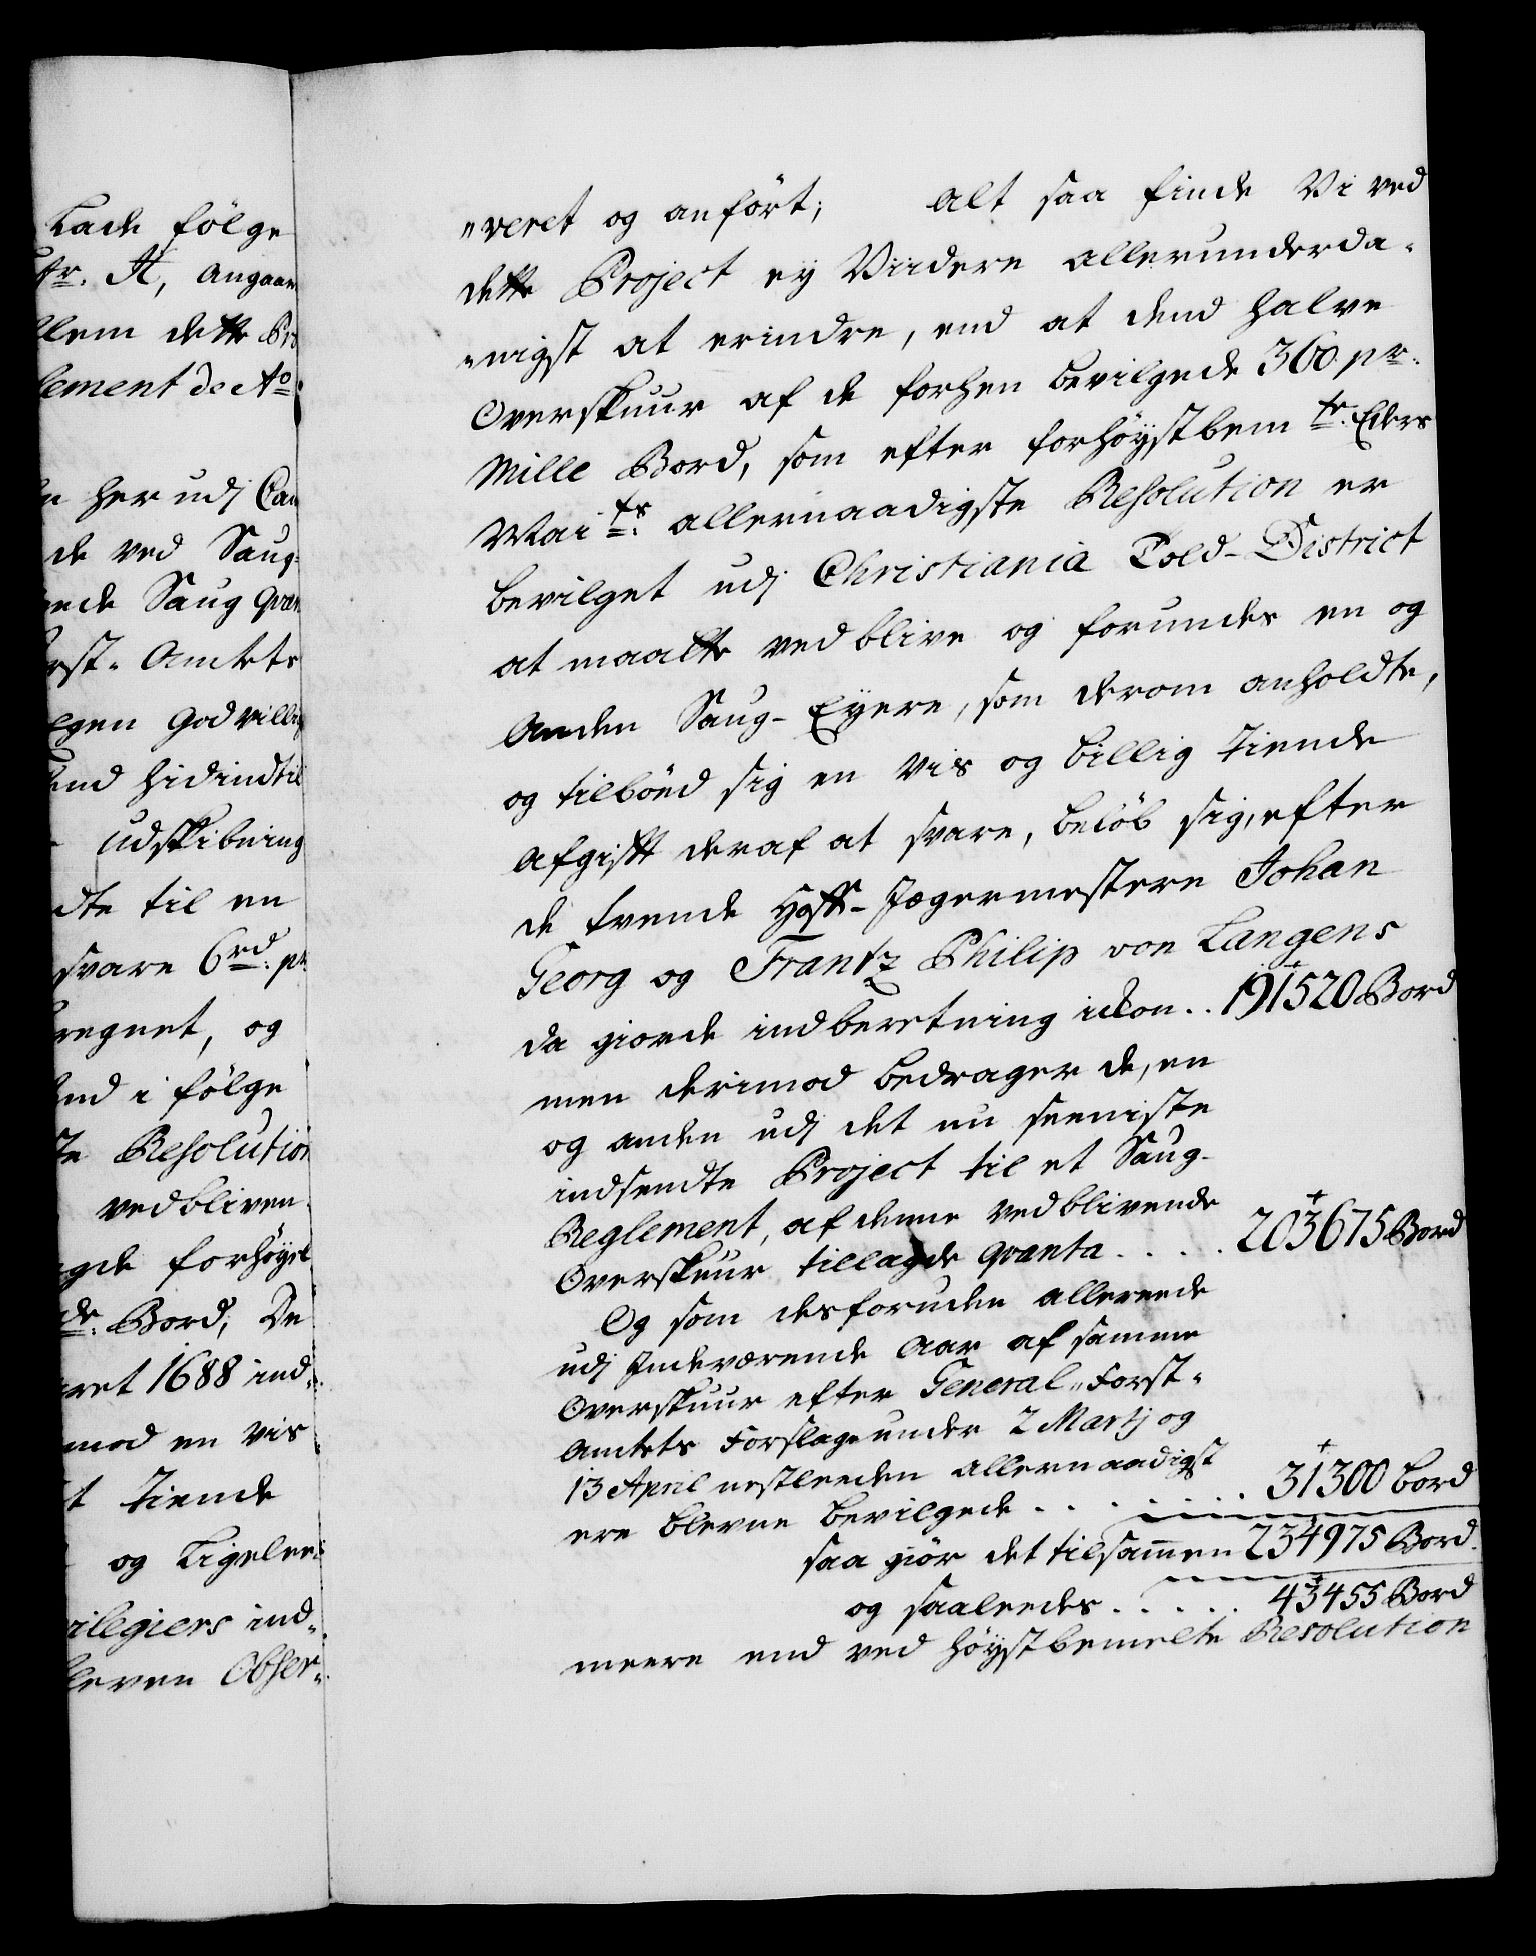 Lade følge
tr. A, angaae
llem dette Pro
lement de Ao:
her udj Cam
de ved Saug-
ende Saug qvan
orst- Amtets
egen god villi
end hidindtil
udskibning
dte til en
svare 6 rd: pr
regnet, og
end i følge
te Resolution
vedbliven
gde forhøyst
de: Bord; De
ret 1688 ind-
mod en vis
t tiende
og Ligelee-
vilegiers ind-
leven Obser-
"veret og anført; Alt saa finde Vi ved
dette Project ey Viidere allerunderda-
"nigst at erindre, end at dend halve
Overskuur af de forhen bevilgede 360 pr.
Mille Bord, som efter forhøystbem te: Eders
Mai ts: allernaadigste Resolution er
bevilget udj Christiania Told-District
at maatte vedblive og forundes en og
Anden Saug-Eyere, som derom anholdte,
og tilbød sig en vis og billig tiende
Afgift deraf at svare, beløb sig, efter
de tvende Hoff-Jægermestere Johan
Georg og Frantz Philip von Langens
da giorde indberetning ickon.. 191520 Bord
men derimod bedrager de, en
og anden udj det nu seeniste
indsendte Project til et Saug-
Reglement, af denne vedblivende
Overskuur tillagde qvanta..... 203675 Bord
Og som desforuden allereede
udj Indeværende Aar af samme
Overskuur efter General-Forst-
Amtets Forslage under 2 Martj og
13 April nestleeden allernaadigst
ere blevne bevilgede........ 31300 bord
saa giør det tilsammen 234975 Bord.
og saaleedes..... 43455 Bord
meere end ved høystbemelte Resolution